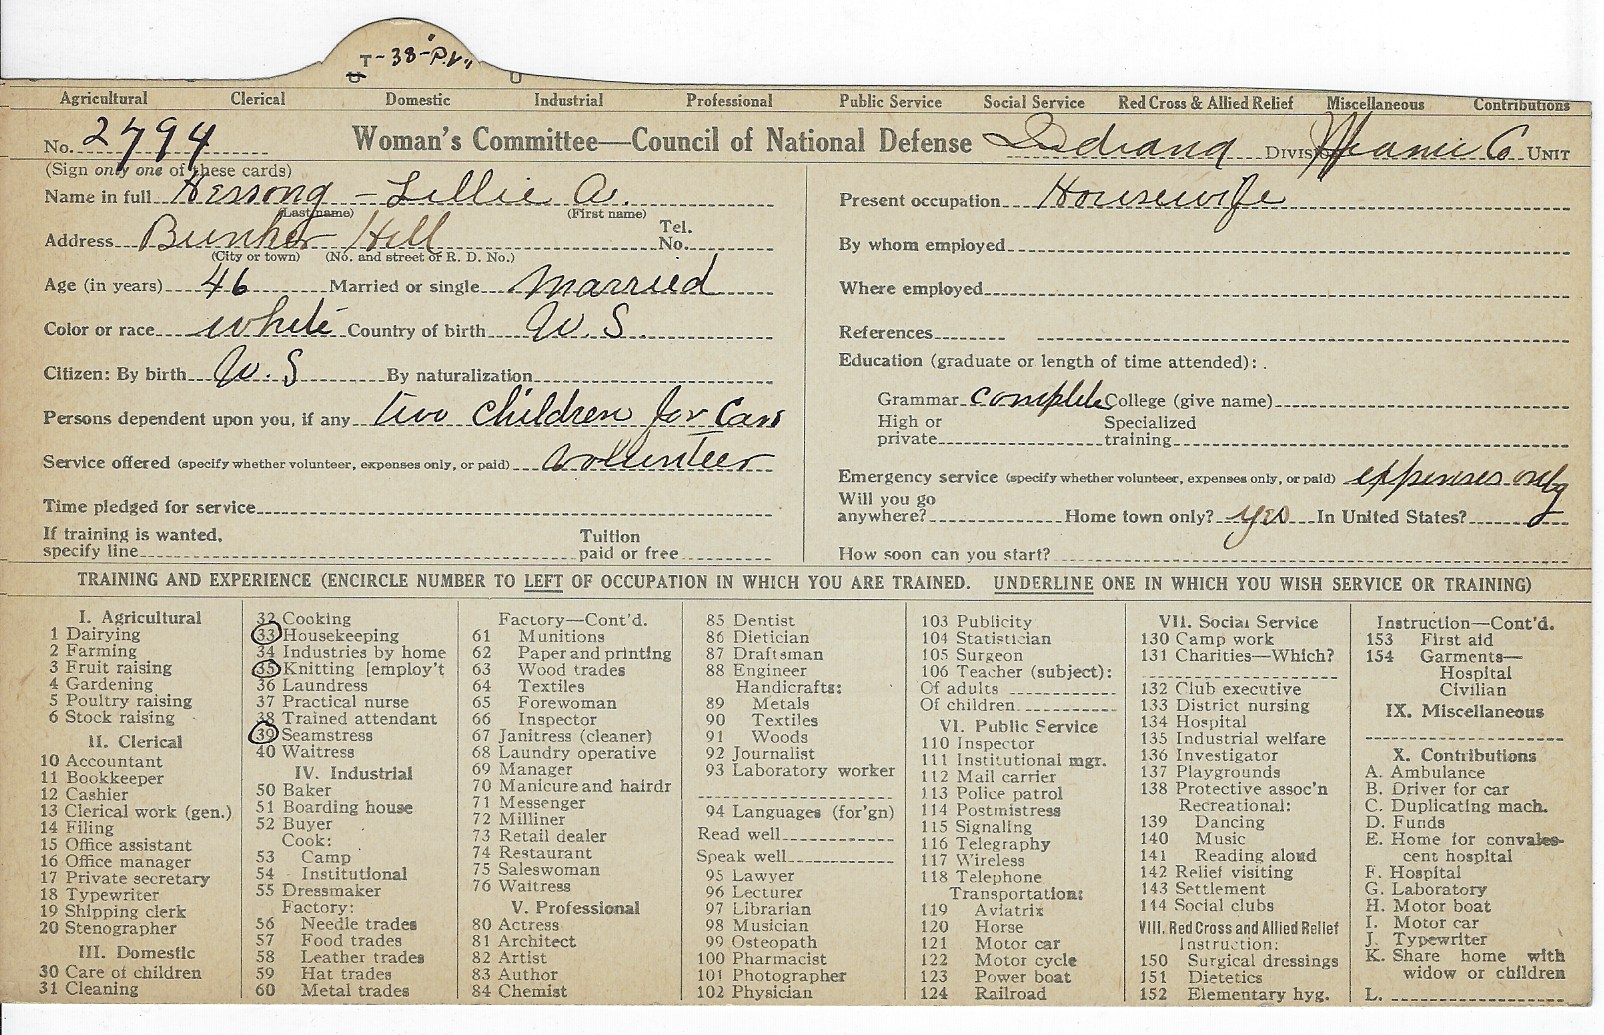 T-38-"P.V."
U U
Agricultural Clerical Domestic Industrial Professional Public Service Social Service Red Cross & Allied Relief Miscellaneous Contributions
No. 2794 Woman's Committee—Council of National Defense Indiana DIVISION Miami Co UNIT
(Sign only one of these cards)
Name in full Hessong - Lillie A.
(Last name) (First name)
Address Bunker Hill Tel. No.
(City or town) (No. and street or R. D. No.)
Age (in years) 46 Married or single married
Color or race white Country of birth U. S.
Citizen: By birth U. S By naturalization
Persons dependent upon you, if any two children for Care
Service offered (specify whether volunteer, expenses only, or paid) volunteer
Time pledged for service
If training is wanted, specify line Tuition paid or free
Present occupation Housewife
By whom employed
Where employed
References
Education (graduate or length of time attended):
Grammar complete College (give name)
High or private Specialized training
Emergency service (specify whether volunteer, expenses only, or paid) expenses only
Will you go anywhere? Home town only? yes In United States?
How soon can you start?
TRAINING AND EXPERIENCE (ENCIRCLE NUMBER TO LEFT OF OCCUPATION IN WHICH YOU ARE TRAINED. UNDERLINE ONE IN WHICH YOU WISH SERVICE OR TRAINING)
I. Agricultural
1 Dairying
2 Farming
3 Fruit raising
4 Gardening
5 Poultry raising
6 Stock raising
II. Clerical
10 Accountant
11 Bookkeeper
12 Cashier
13 Clerical work (gen.)
14 Filing
15 Office assistant
16 Office manager
17 Private secretary
18 Typewriter
19 Shipping clerk
20 Stenographer
III. Domestic
30 Care of children
31 Cleaning
32 Cooking
33 Housekeeping
34 Industries by home
35 Knitting [employ't
36 Laundress
37 Practical nurse
38 Trained attendant
39 Seamstress
40 Waitress
IV. Industrial
50 Baker
51 Boarding house
52 Buyer
Cook:
53 Camp
54 Institutional
55 Dressmaker
Factory:
56 Needle trades
57 Food trades
58 Leather trades
59 Hat trades
60 Metal trades
Factory—Cont'd.
61 Munitions
62 Paper and printing
63 Wood trades
64 Textiles
65 Forewoman
66 Inspector
67 Janitress (cleaner)
68 Laundry operative
69 Manager
70 Manicure and hairdr
71 Messenger
72 Milliner
73 Retail dealer
74 Restaurant
75 Saleswoman
76 Waitress
V. Professional
80 Actress
81 Architect
82 Artist
83 Author
84 Chemist
85 Dentist
86 Dietician
87 Draftsman
88 Engineer
Handicrafts:
89 Metals
90 Textiles
91 Woods
92 Journalist
93 Laboratory worker
94 Languages (for'gn)
Read well
Speak well
95 Lawyer
96 Lecturer
97 Librarian
98 Musician
99 Osteopath
100 Pharmacist
101 Photographer
102 Physician
103 Publicity
104 Statistician
105 Surgeon
106 Teacher (subject):
Of adults
Of children
VI. Public Service
110 Inspector
111 Institutional mgr.
112 Mail carrier
113 Police patrol
114 Postmistress
115 Signaling
116 Telegraphy
117 Wireless
118 Telephone
Transportation:
119 Aviatrix
120 Horse
121 Motor car
122 Motor cycle
123 Power boat
124 Railroad
VII. Social Service
130 Camp work
131 Charities—Which?
132 Club executive
133 District nursing
134 Hospital
135 Industrial welfare
136 Investigator
137 Playgrounds
138 Protective assoc'n
Recreational:
139 Dancing
140 Music
141 Reading aloud
142 Relief visiting
143 Settlement
144 Social clubs
VIII. Red Cross and Allied Relief
Instruction:
150 Surgical dressings
151 Dietetics
152 Elementary hyg.
Instruction—Cont'd.
153 First aid
154 Garments—
Hospital
Civilian
IX. Miscellaneous
X. Contributions
A. Ambulance
B. Driver for car
C. Duplicating mach.
D. Funds
E. Home for convales-
cent hospital
F. Hospital
G. Laboratory
H. Motor boat
I. Motor car
J. Typewriter
K. Share home with
widow or children
L.